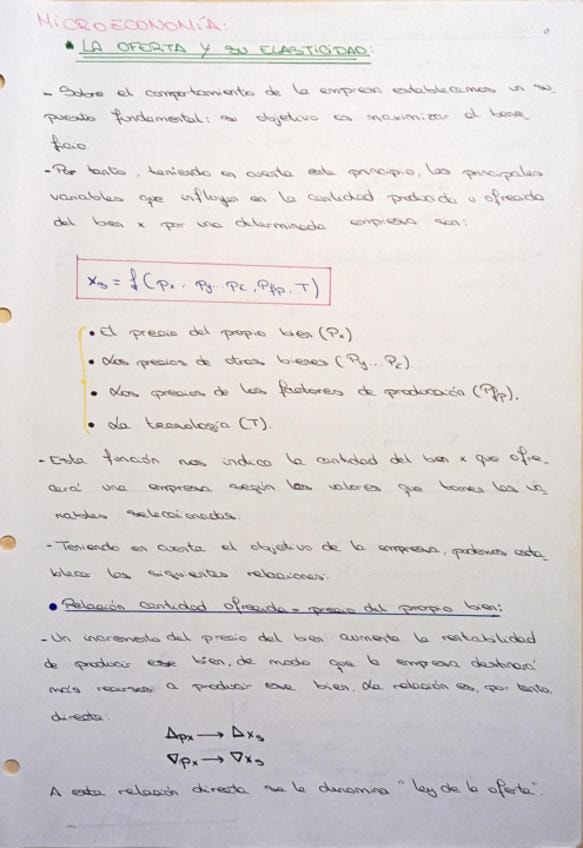 MICROECONOMÍA:
• LA OFERTA Y SU ELASTICIDAD:
- Sobre el comportamiento de la empresa establecemos un su-
puesto fundamental: su objetivo es maximizar el bene-
ficio.
- Por tanto, teniendo en cuenta este principio, las principales
variables que influyen en la cantidad producida u ofrecida
del bien x por una determinada empresa son:
Xs = f (Px, Py...Pz, Pfp, T)
• El precio del propio bien (Px).
• Los precios de otros bienes (Py...Pz).
• Los precios de los factores de producción (Pfp).
• La tecnología (T).
- Esta función nos indica la cantidad del bien x que ofre-
cerá una empresa según los valores que tomen las va-
riables seleccionadas.
- Teniendo en cuenta el objetivo de la empresa, podemos esta-
blecer las siguientes relaciones:
• Relación cantidad ofrecida - precio del propio bien:
- Un incremento del precio del bien aumenta la rentabilidad
de producir ese bien, de modo que la empresa destinará
más recursos a producir ese bien. La relación es, por tanto,
directa:
Δpx → Δxs
∇px → ∇xs
A esta relación directa se le denomina "ley de la oferta".